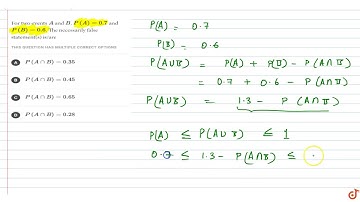 For two events A and B, P(A) = 0.7 and
P(B) = 0.6. The necessarily false
statement(s) is/are
THIS QUESTION HAS MULTIPLE CORRECT OPTIONS
A P(A ∩ B) = 0.35
B P(A ∩ B) = 0.45
C P(A ∩ B) = 0.65
D P(A ∩ B) = 0.28
P(A) = 0.7
P(B) = 0.6
P(A∪B) = P(A) + P(B) - P(A∩B)
= 0.7 + 0.6 - P(A∩B)
P(A∪B) = 1.3 - P(A∩B)
P(A) ≤ P(A∪B) ≤ 1
≤ 1.3 - P(A∩B) ≤